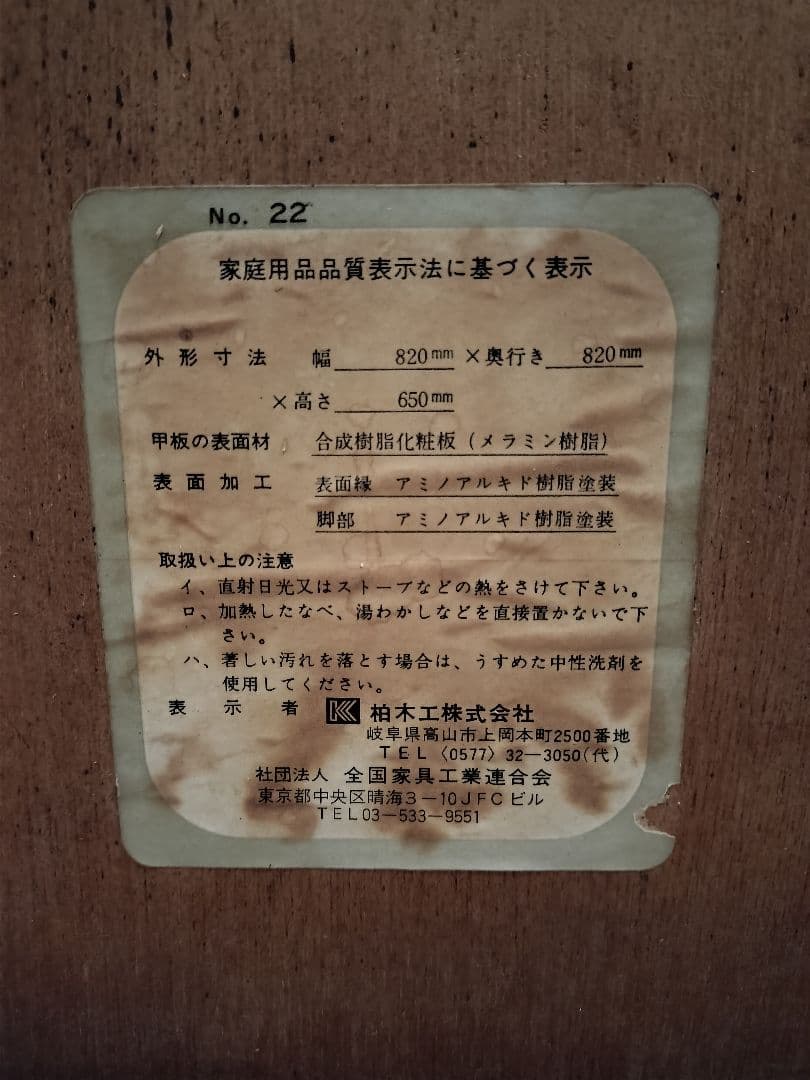 No. 22
家庭用品品質表示法に基づく表示
外形寸法 幅 820mm ×奥行き 820mm
×高さ 650mm
甲板の表面材 合成樹脂化粧板(メラミン樹脂)
表面加工 表面縁 アミノアルキド樹脂塗装
脚部 アミノアルキド樹脂塗装
取扱い上の注意
イ、直射日光又はストーブなどの熱をさけて下さい。
ロ、加熱したなべ、湯わかしなどを直接置かないで下
さい。
ハ、著しい汚れを落とす場合は、うすめた中性洗剤を
使用してください。
表示者 柏木工株式会社
岐阜県高山市上岡本町2500番地
TEL〈0577〉32―3050(代)
社団法人 全国家具工業連合会
東京都中央区晴海3―10JFCビル
TEL03―533―9551